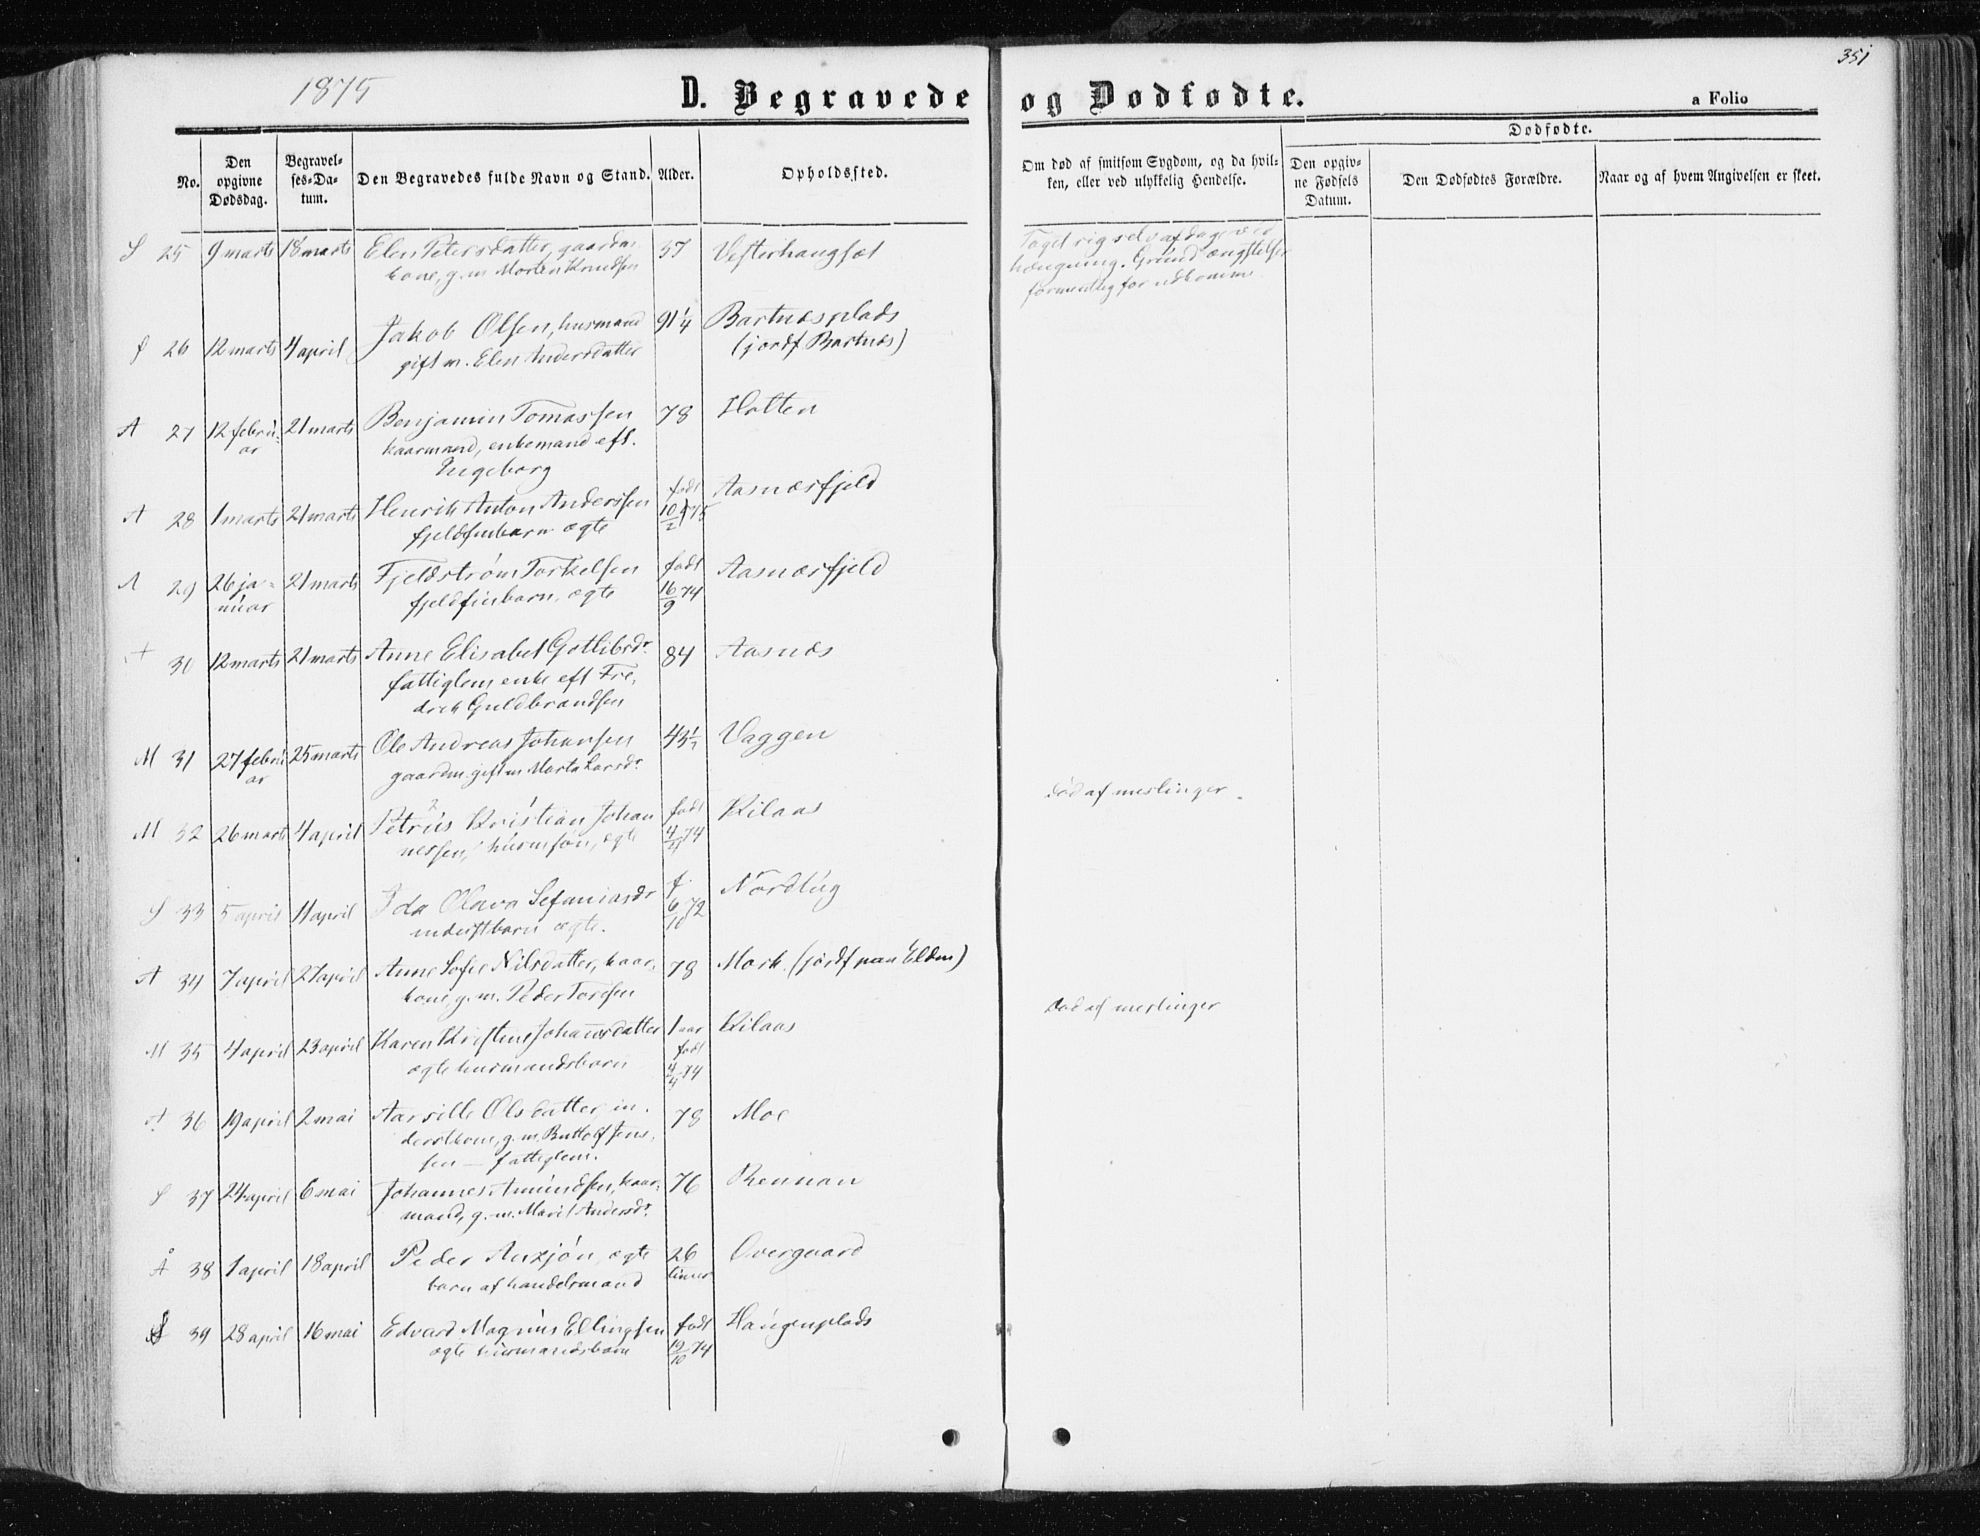 351
1875
D. Begravede og Dødfødte.
a Folio
No.
Den opgivne Dødsdag.
Begravelses-Datum.
Den Begravedes fulde Navn og Stand.
Alder.
Opholdssted.
Om død af smitsom Sygdom, og da hvilken, eller ved ulykkelig Hendelse.
Dødfødte.
Den opgivne Fødsels Datum.
Den Dødfødtes Forældre.
Naar og af hvem Angivelsen er skeet.
S 25 9 marts 18 marts Elen Petersdatter, gaardm. 57 Vesterhaugsæt Taget sig selv af dage ved
kone, g. m. Morten Knudsen hængning. Grund ængstelse
formentlig for udkomme.
S 26 12 marts 4 april Jakob Olsen, husmand 91 1/4 Bartnæsplads
gift m. Elen Andersdatter (jordf Bartnæs)
A 27 12 febru- 21 marts Benjamin Tomassen 78 Holten
ar kaarmand, enkemand eft.
Ingeborg
A 28 1 marts 21 marts Henrik Anton Anderssen født Aasnæsfjeld
fjeldfinbarn ægte 10/2 75
A 29 26 ja- 21 marts Fjeldstrøm Torkelsen født Aasnæsfjeld
nuar fjeldfinbarn, ægte 16/9 74
A 30 12 marts 21 marts Anne Elisabet Gotlibsdr 84 Aasnæs
fattiglem enke eft Fre-
drik Guldbrandsen
M 31 27 febru 25 marts Ole Andreas Johansen 43 1/2 Vaggen
ar gaardm. gift m Marta Larsdr
M 32 26 marts 4 april Petrus Kristian Johan født Kilaas død af meslinger.
nessen, husmsøn, ægte 4/4 74
S 33 5 april 11 april Ida Olava Sefaniasdr f. Nordlug
inderstbarn ægte. 6/10 72
A 34 7 april 27 april Anne Sofie Nilsdatter, kaar- 78 Mork. (jordf paa Elden)
kone, g. m. Peder Toresen
M 35 4 april 23 april Karen Kristine Johansdatter 1 aar Kilaas død af meslinger
ægte husmandsbarn født
4/4 74
A 36 19 april 2 mai Aarsille Olsdatter, in- 78 Moe
derstkone, g. m. Buttolf Jens-
sen — fattiglem.
S 37 24 april 6 mai Johannes Amundsen, kaar- 76 Rennan
mand, g. m. Marit Andersdr.
Å 38 1 april 18 april Peder Auxjøn, ægte 26 Overgaard
barn af handelsmand timer
S 39 28 april 16 mai Edvard Magnus Ellingsen født Haugenplads
ægte husmandsbarn 19/10 74